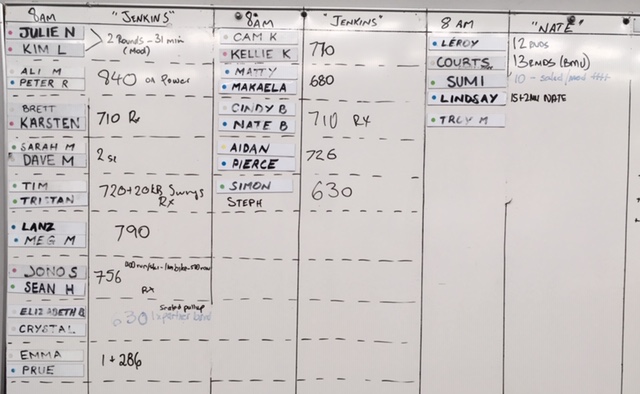 8AM "JENKINS"
JULIE N
KIM L
2 Rounds - 31 min
(Mod)
ALI M
PETER R
840 on Power
BRETT
KARSTEN
710 Rx
SARAH M
DAVE M
TIM
TRISTAN
720+20 KB Swings
Rx
LANZ
MEG M
790
JONO S
SEAN H
756
Rx
ELIZABETH B
CRYSTAL
30
EMMA
PRUE
1 + 286
8AM "JENKINS"
CAM K
KELLIE K
770
MATTY
MAKAELA
680
CINDY B
NATE B
710 RX
AIDAN
PIERCE
726
SIMON
STEPH
630
8 AM "NATE"
LEROY 12 RNDS
COURTS. 13 RNDS (BMU)
SUMI 10 -
LINDSAY 15+2MU NATE
TROY M